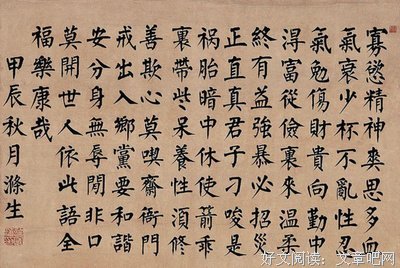 寡慾精神爽思多血
氣衰少杯不亂性忍
氣勉傷財貴向勤中
淂富從儉裏來温柔
終有益強暴必招災
正直真君子刁唆是
祸胎暗中休使箭乖
裏帶些呆養性湏修
善欺心莫喫齋衙門
戒出入鄉黨要和谐
安分身無辱閒非口
莫開世人依此語全
福樂康哉
甲辰秋月滌生
好文阅读：文章吧网